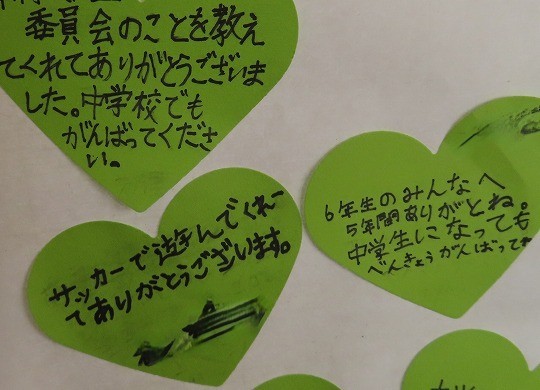 委員会のことを教え
てくれてありがとうございま
した。中学校でも
がんばってくださ
い。
サッカーで遊んでくれー
てありがとうございます。
6年生のみんなへ
5年間ありがとね。
中学生になっても
べんきょうがんばってね